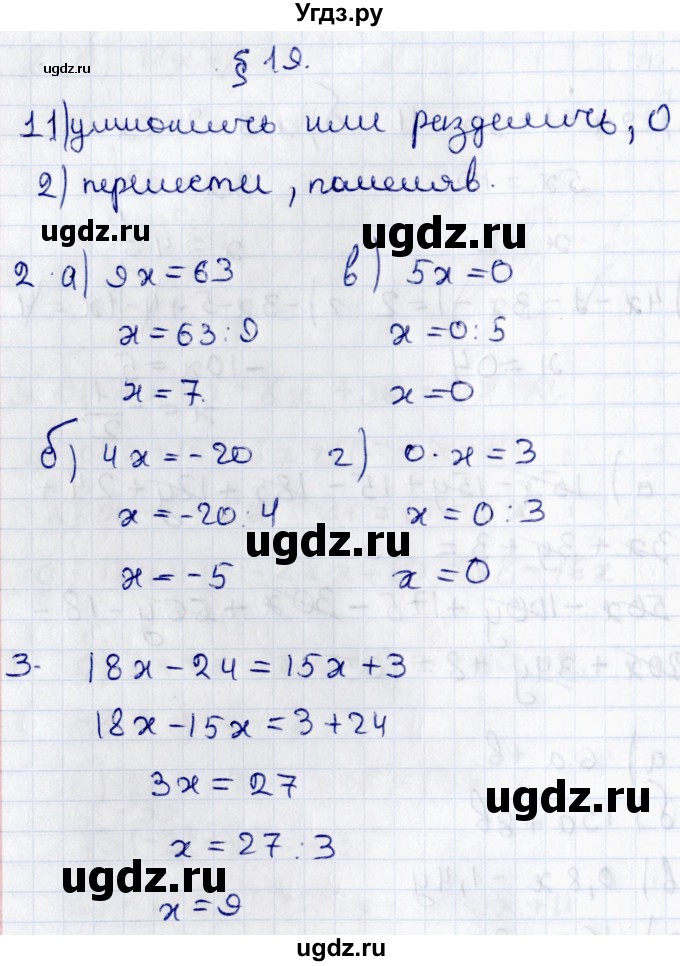 Угдз.ру
ugdz.ru
§ 19.
1 1) умножить или разделить, 0
2) перенести, поменяв.
ugdz.ru
ugdz.ru
2. а) 9x = 63
x = 63 : 9
x = 7.
в) 5x = 0
x = 0 : 5
x = 0
б) 4x = - 20
x = -20 : 4
x = - 5
г) 0 · x = 3
x = 0 : 3
x = 0
ugdz.ru
3. 18x - 24 = 15x + 3
18x - 15x = 3 + 24
3x = 27
x = 27 : 3
x = 9
ugdz.ru
ugdz.ru
ugdz.ru